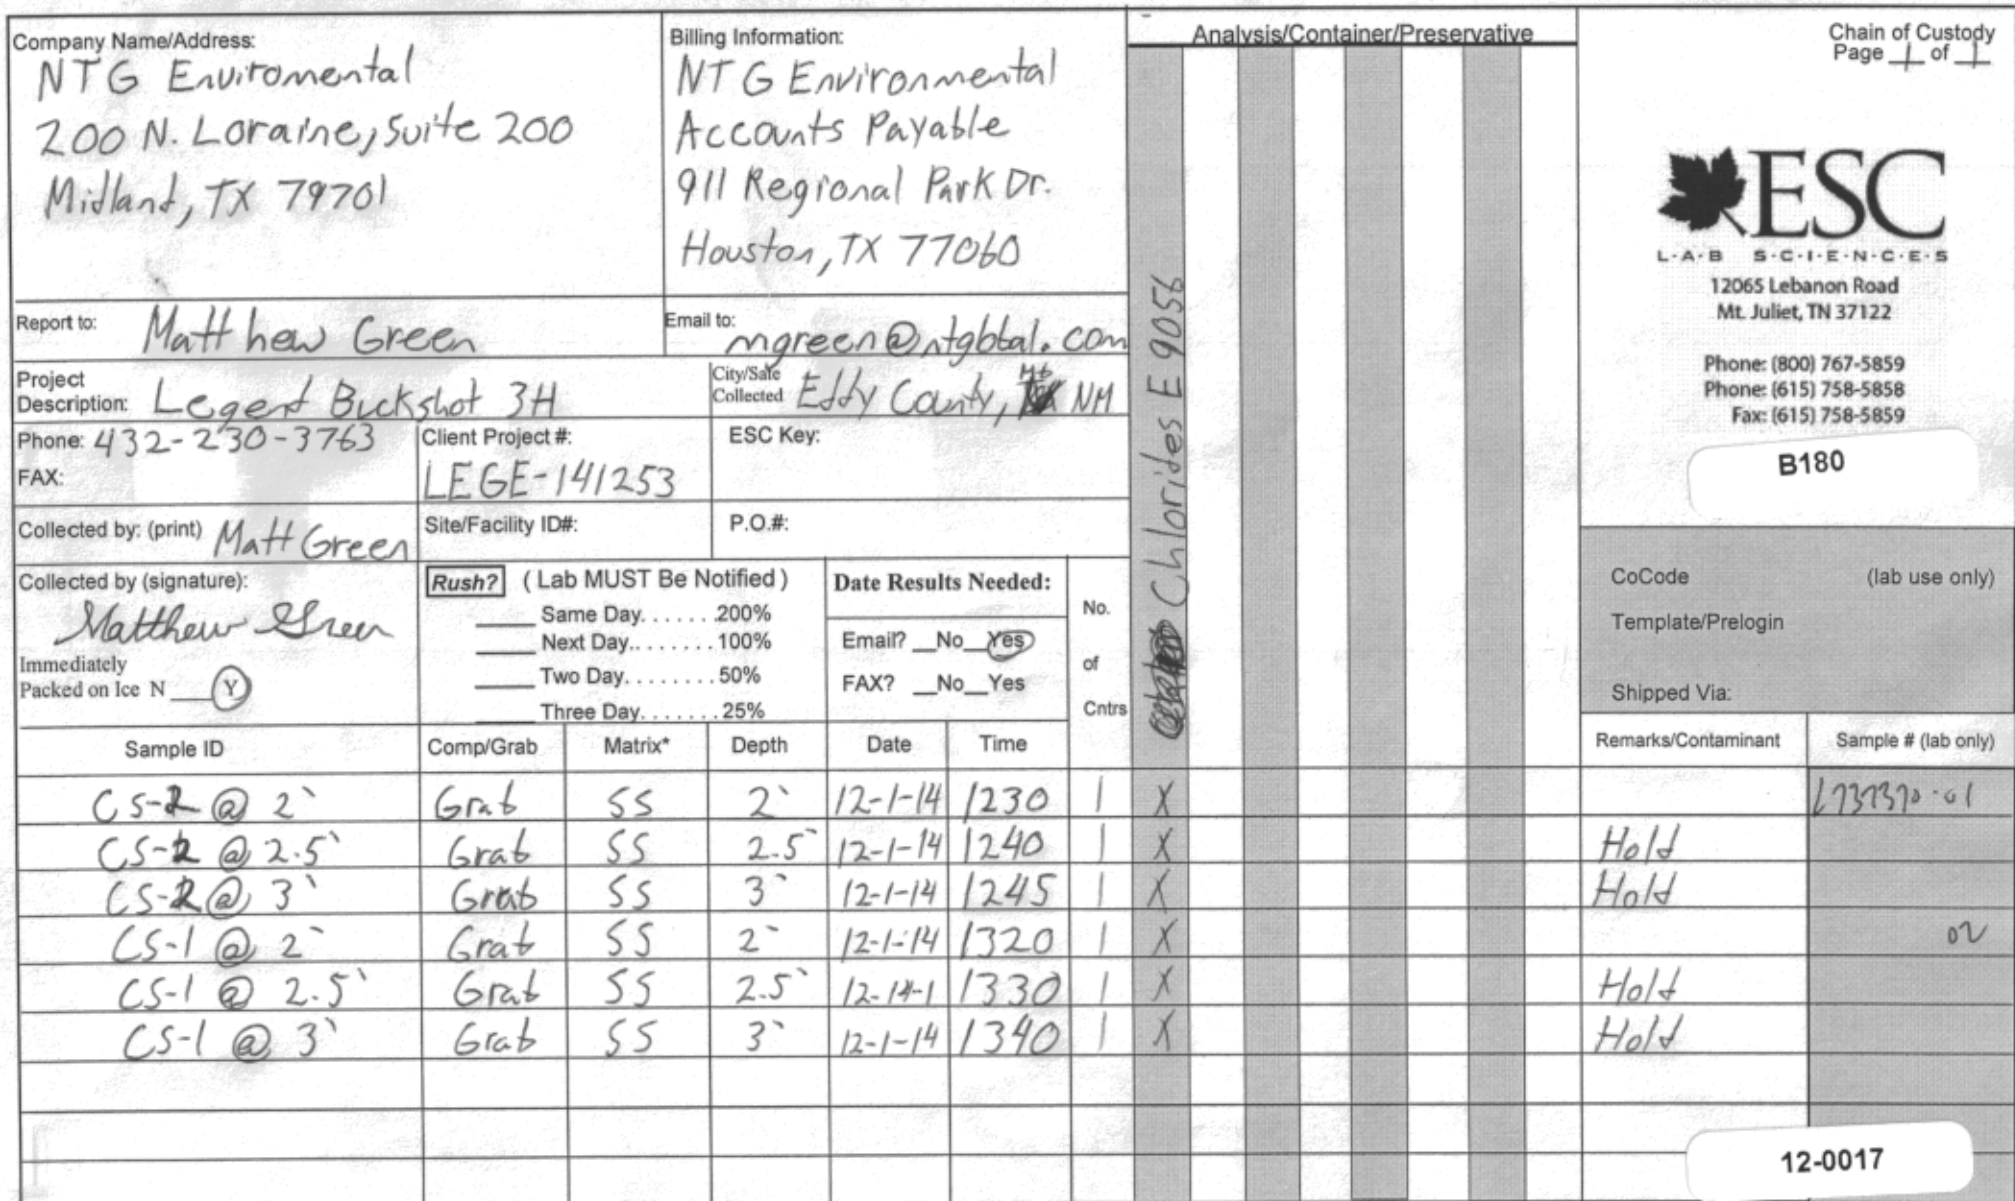 Company Name/Address:
NTG Enviromental
200 N. Loraine, Suite 200
Midland, TX 79701
Billing Information:
NTG Environmental
Accounts Payable
911 Regional Park Dr.
Houston, TX 77060
Analysis/Container/Preservative
Chlorides E 9056
Chain of Custody
Page 1 of 1
ESC
L·A·B S·C·I·E·N·C·E·S
12065 Lebanon Road
Mt. Juliet, TN 37122
Phone: (800) 767-5859
Phone: (615) 758-5858
Fax: (615) 758-5859
B180
Report to: Matthew Green
Email to: mgreen@ntgbtal.com
Project
Description: Legend Buckshot 3H
City/Sate
Collected Eddy County, NM
Phone: 432-230-3763
FAX:
Client Project #:
LEGE-141253
ESC Key:
Collected by: (print) Matt Green
Site/Facility ID#:
P.O.#:
Collected by (signature):
Matthew Green
Immediately
Packed on Ice N ___ Y
Rush? ( Lab MUST Be Notified )
____ Same Day. . . . . . .200%
____ Next Day.. . . . . . . 100%
____ Two Day. . . . . . . . 50%
____ Three Day. . . . . . .25%
Date Results Needed:
Email? __No__Yes
FAX? __No__Yes
No.
of
Cntrs
CoCode (lab use only)
Template/Prelogin
Shipped Via:
Sample ID Comp/Grab Matrix* Depth Date Time Remarks/Contaminant Sample # (lab only)
CS-2 @ 2` Grab SS 2` 12-1-14 1230 1 X L737370-01
CS-2 @ 2.5` Grab SS 2.5` 12-1-14 1240 1 X Hold
CS-2 @ 3` Grab SS 3` 12-1-14 1245 1 X Hold
CS-1 @ 2` Grab SS 2` 12-1-14 1320 1 X 02
CS-1 @ 2.5` Grab SS 2.5` 12-14-1 1330 1 X Hold
CS-1 @ 3` Grab SS 3` 12-1-14 1340 1 X Hold
12-0017